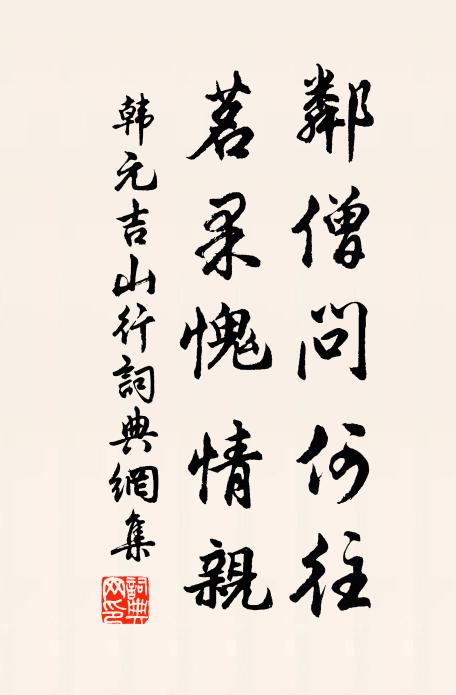 鄰僧問何往
茗果愧情親
韩元吉山行詞典網集
詞典网印